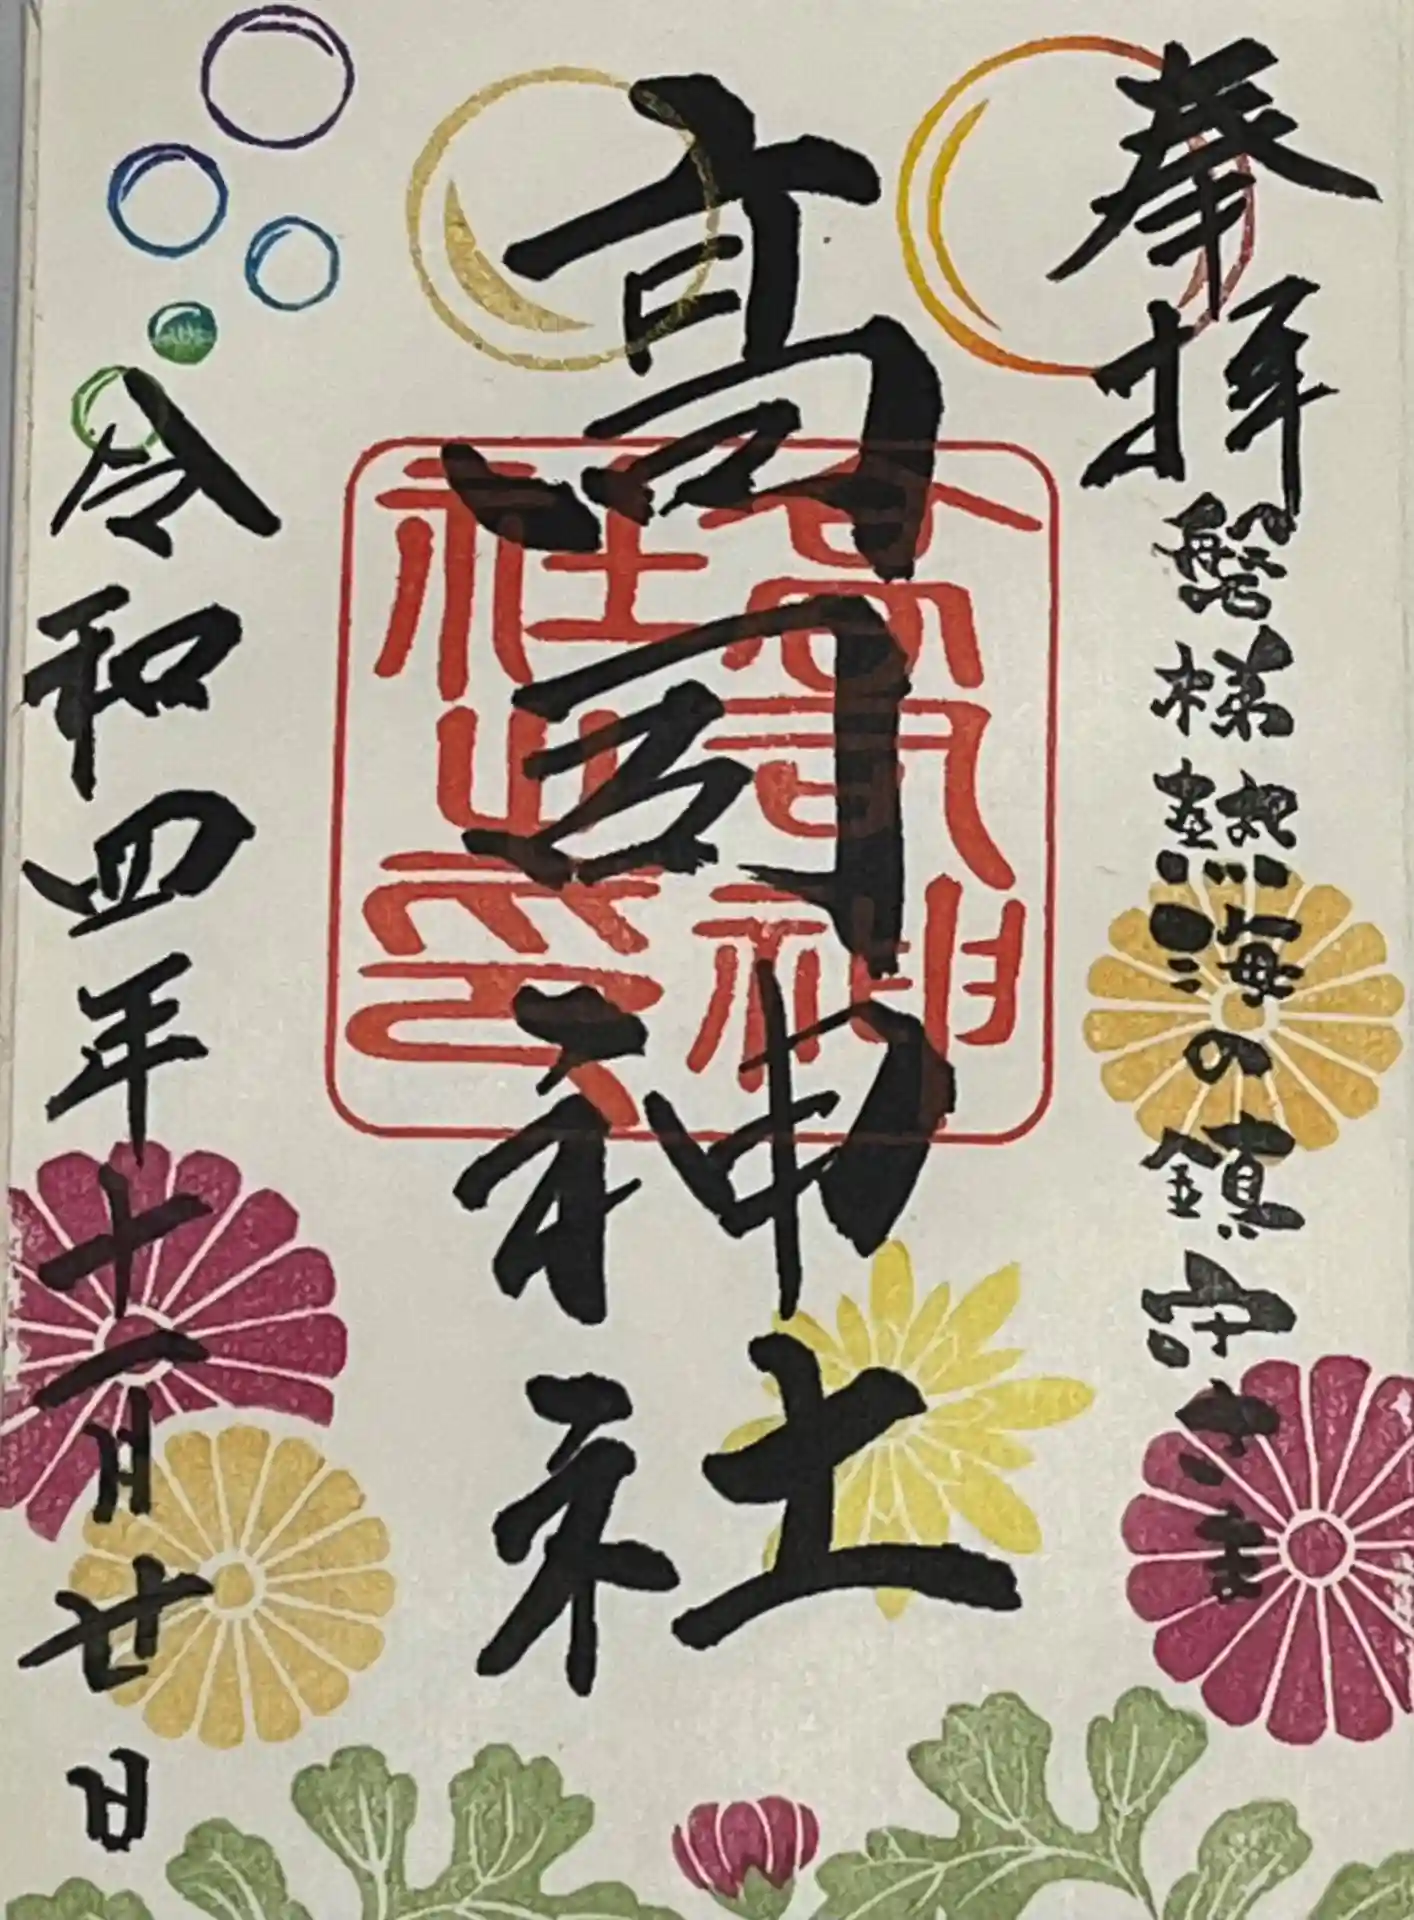 奉拝
磐梯熱海の鎮守さま
高司神社
高司神
社之印
令和四年十一月廿日